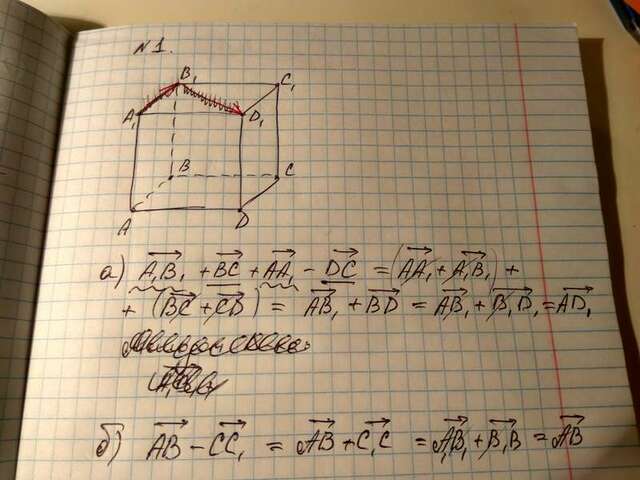 N1.
B₁ C₁
A₁ D₁
B C
A D
а) A₁B₁ + BC + AA₁ − DC = (AA₁ + A₁B₁) +
+ (BC + CD) = AB₁ + BD = AB₁ + B₁D₁ = AD₁
б) AB − CC₁ = AB + C₁C = A₁B₁ + B₁B = AB